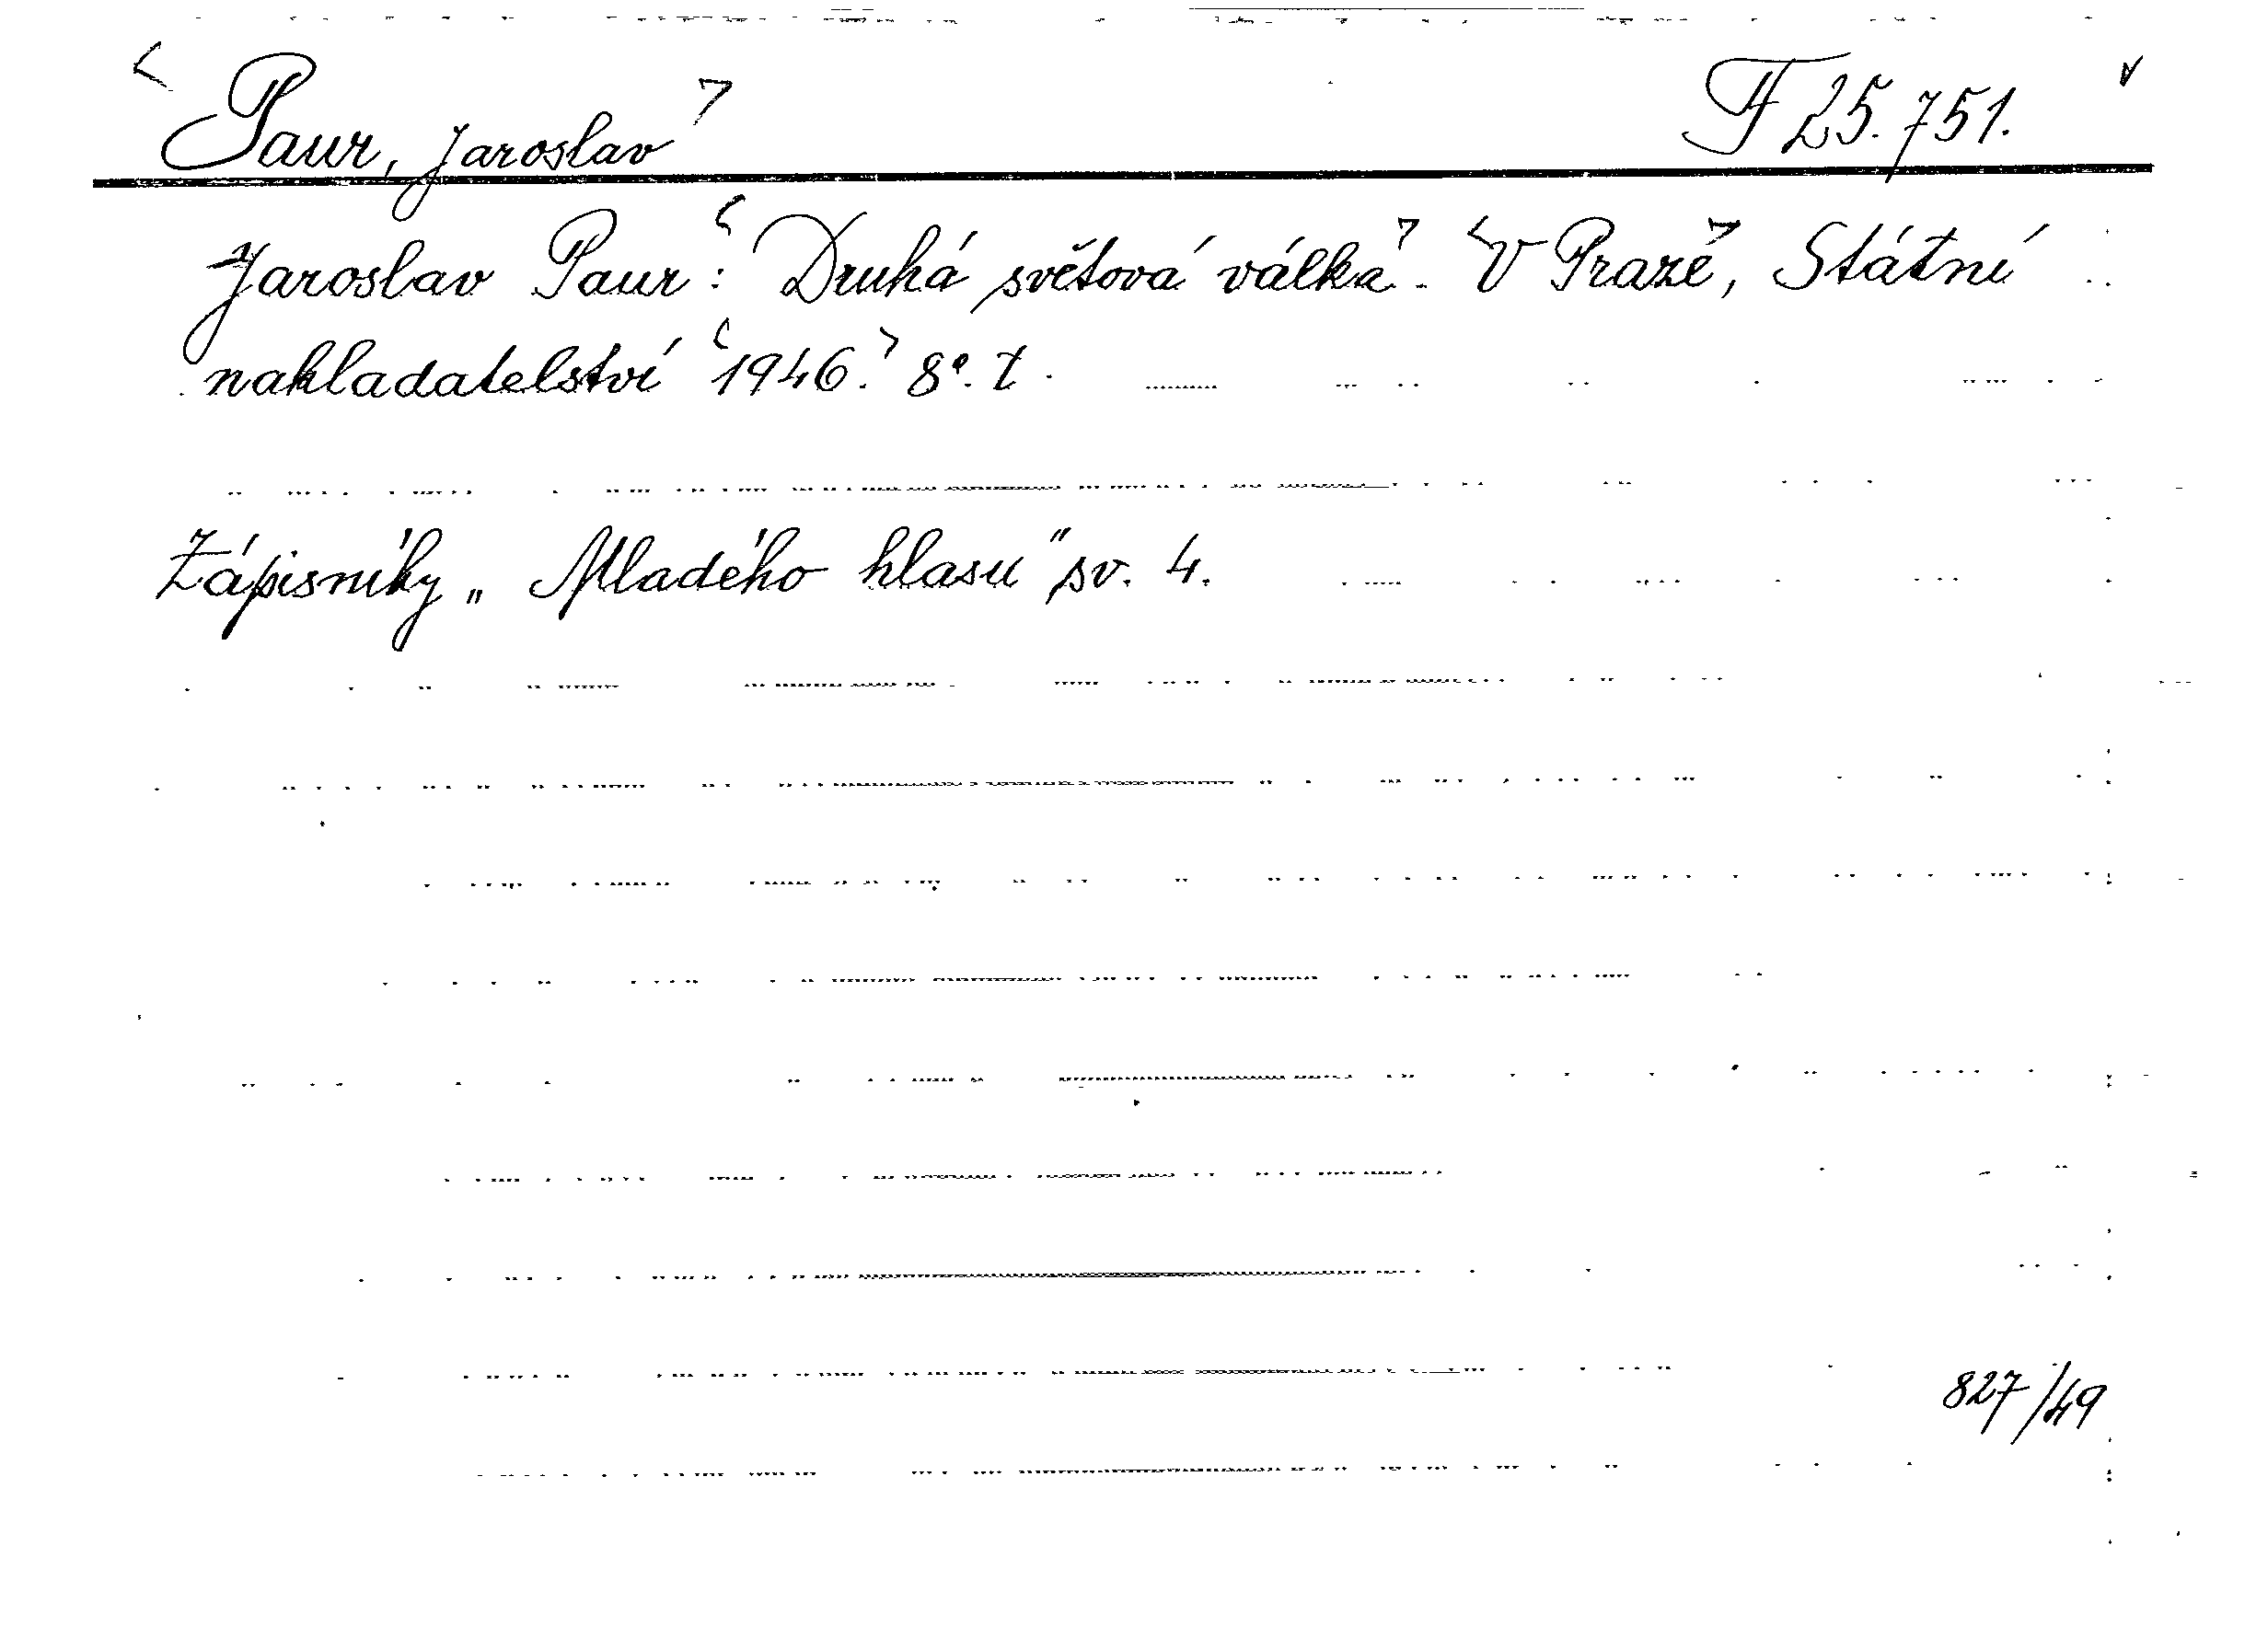 <Paur, Jaroslav> F 25.751.
Jaroslav Paur: <Druhá světová válka>. <V Praze>, Státní
nakladatelství <1946.> 8°. t.
Zápisníky „Mladého hlasu" sv. 4.
827/49